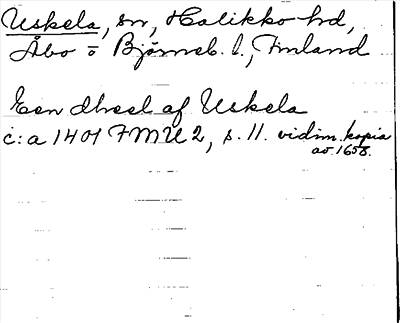 Uskela, sn, Halikko hd,
Åbo o Björneb. l., Finland
Een dheel af Uskela
c:a 1401 FMU 2, s. 11. vidim. kopia
av. 1658.